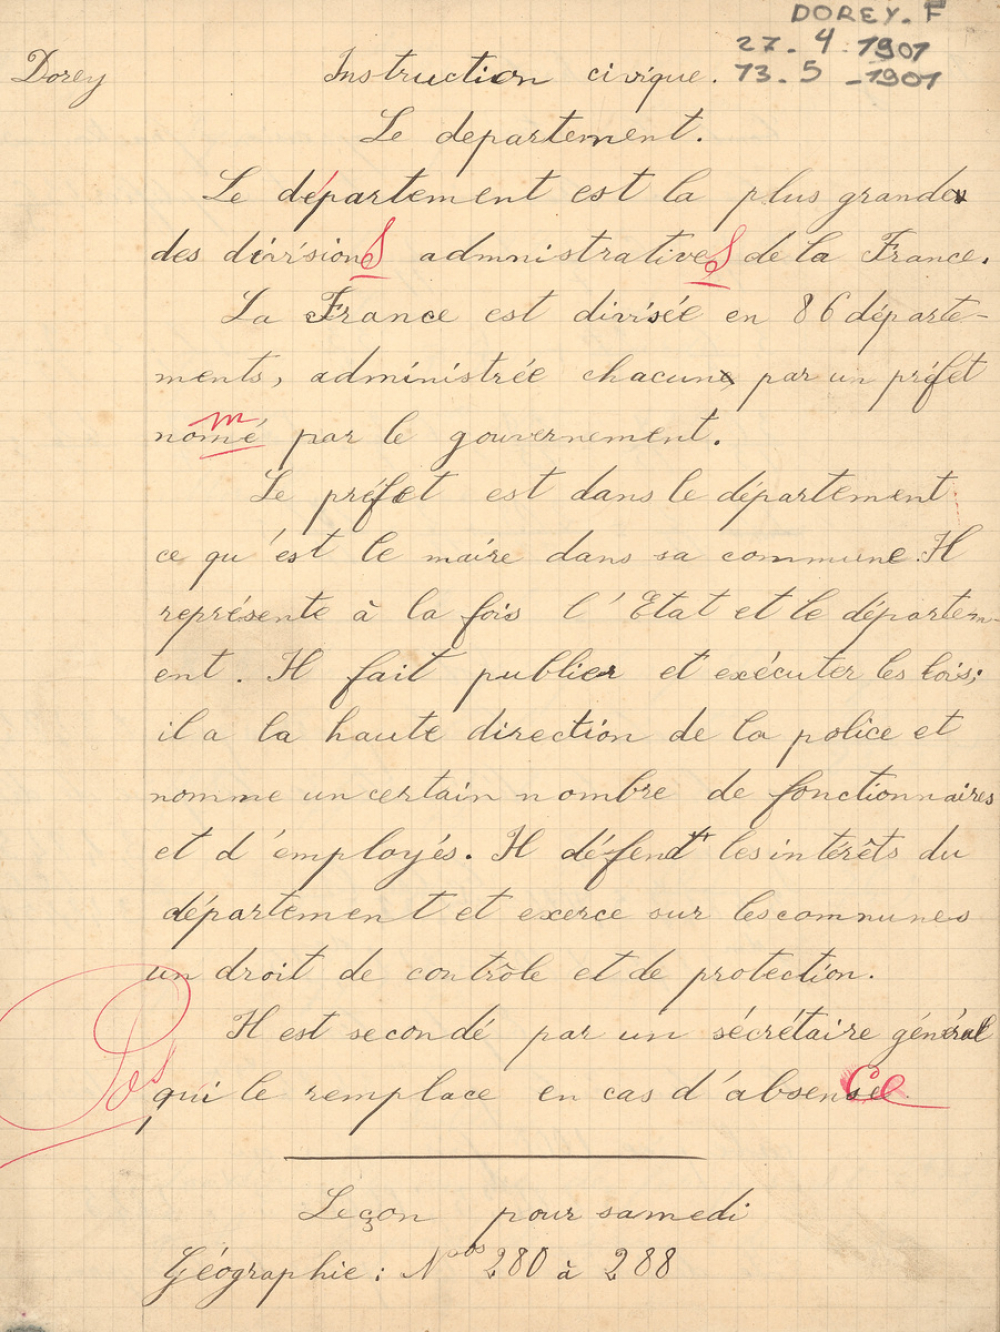 DOREY. F
27. 4. 1901
13. 5 - 1901
Dorey
Instruction civique.
Le departement.
Le département est la plus grande
des divisions admnistratives de la France.
La France est divisée en 86 départe-
ments, administrée chacun par un préfet
nomé par le gouvernement.
m
Le préfet est dans le département
ce qu'est le maire dans sa commune. Il
représente à la fois l'Etat et le départem-
ent. Il fait publier et exécuter les lois;
il a la haute direction de la police et
nomme un certain nombre de fonctionnaires
et d'employés. Il défend les intérêts du
département et exerce sur les communes
un droit de contrôle et de protection.
Il est secondé par un sécrétaire général
qui le remplace en cas d'absence
Leçon pour samedi
Géographie: Nos 280 à 288